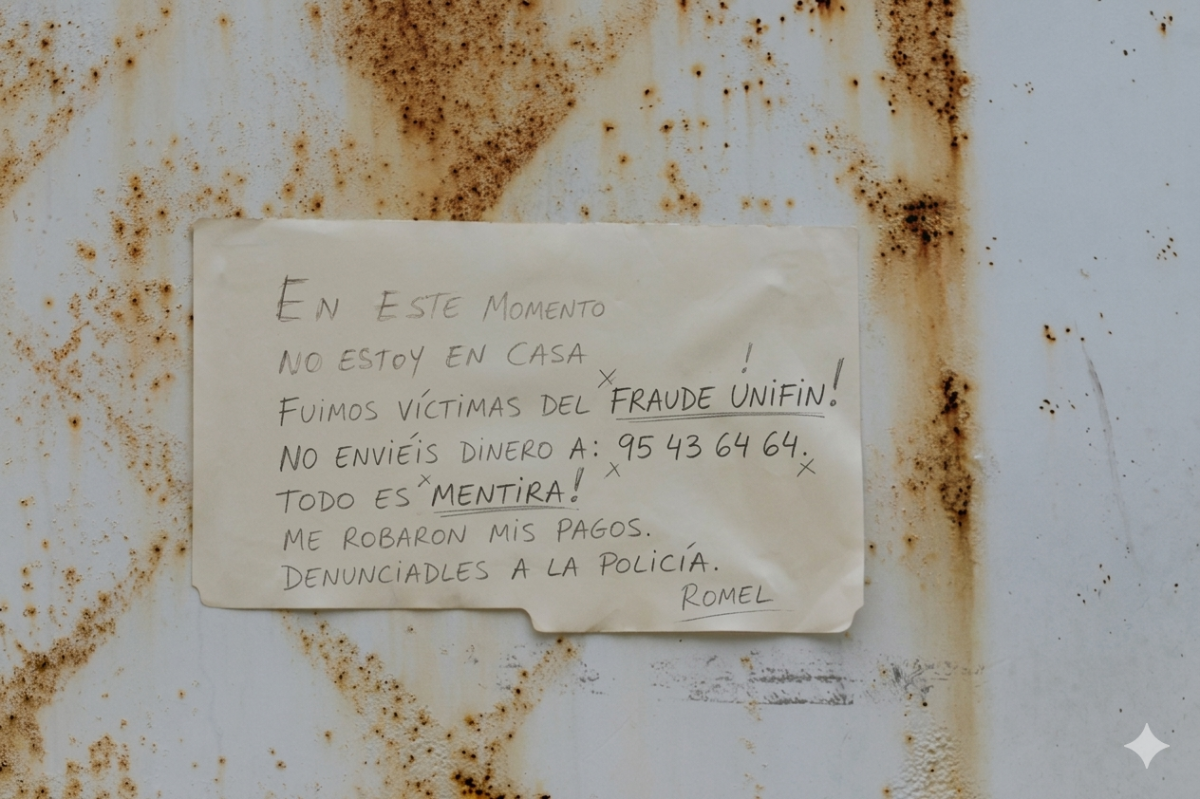 EN ESTE MOMENTO
NO ESTOY EN CASA
FUIMOS VÍCTIMAS DEL FRAUDE UNIFIN!
NO ENVIÉIS DINERO A: 95 43 64 64.
TODO ES MENTIRA!
ME ROBARON MIS PAGOS.
DENUNCIADLES A LA POLICÍA.
ROMEL